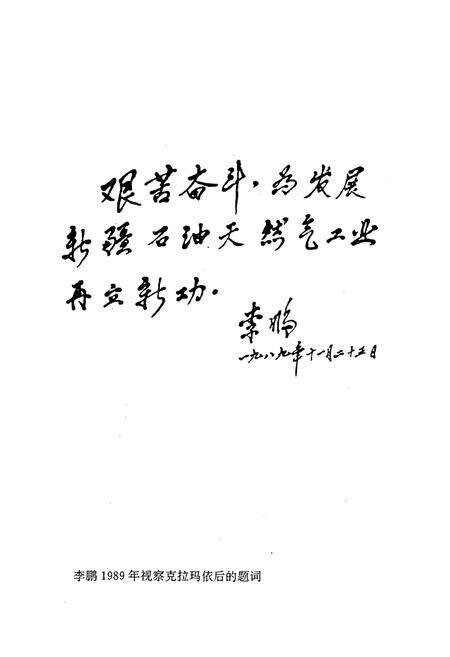 艰苦奋斗，为发展
新疆石油天然气工业
再立新功。
李鹏
一九八九年十一月二十五日
李鹏1989年视察克拉玛依后的题词